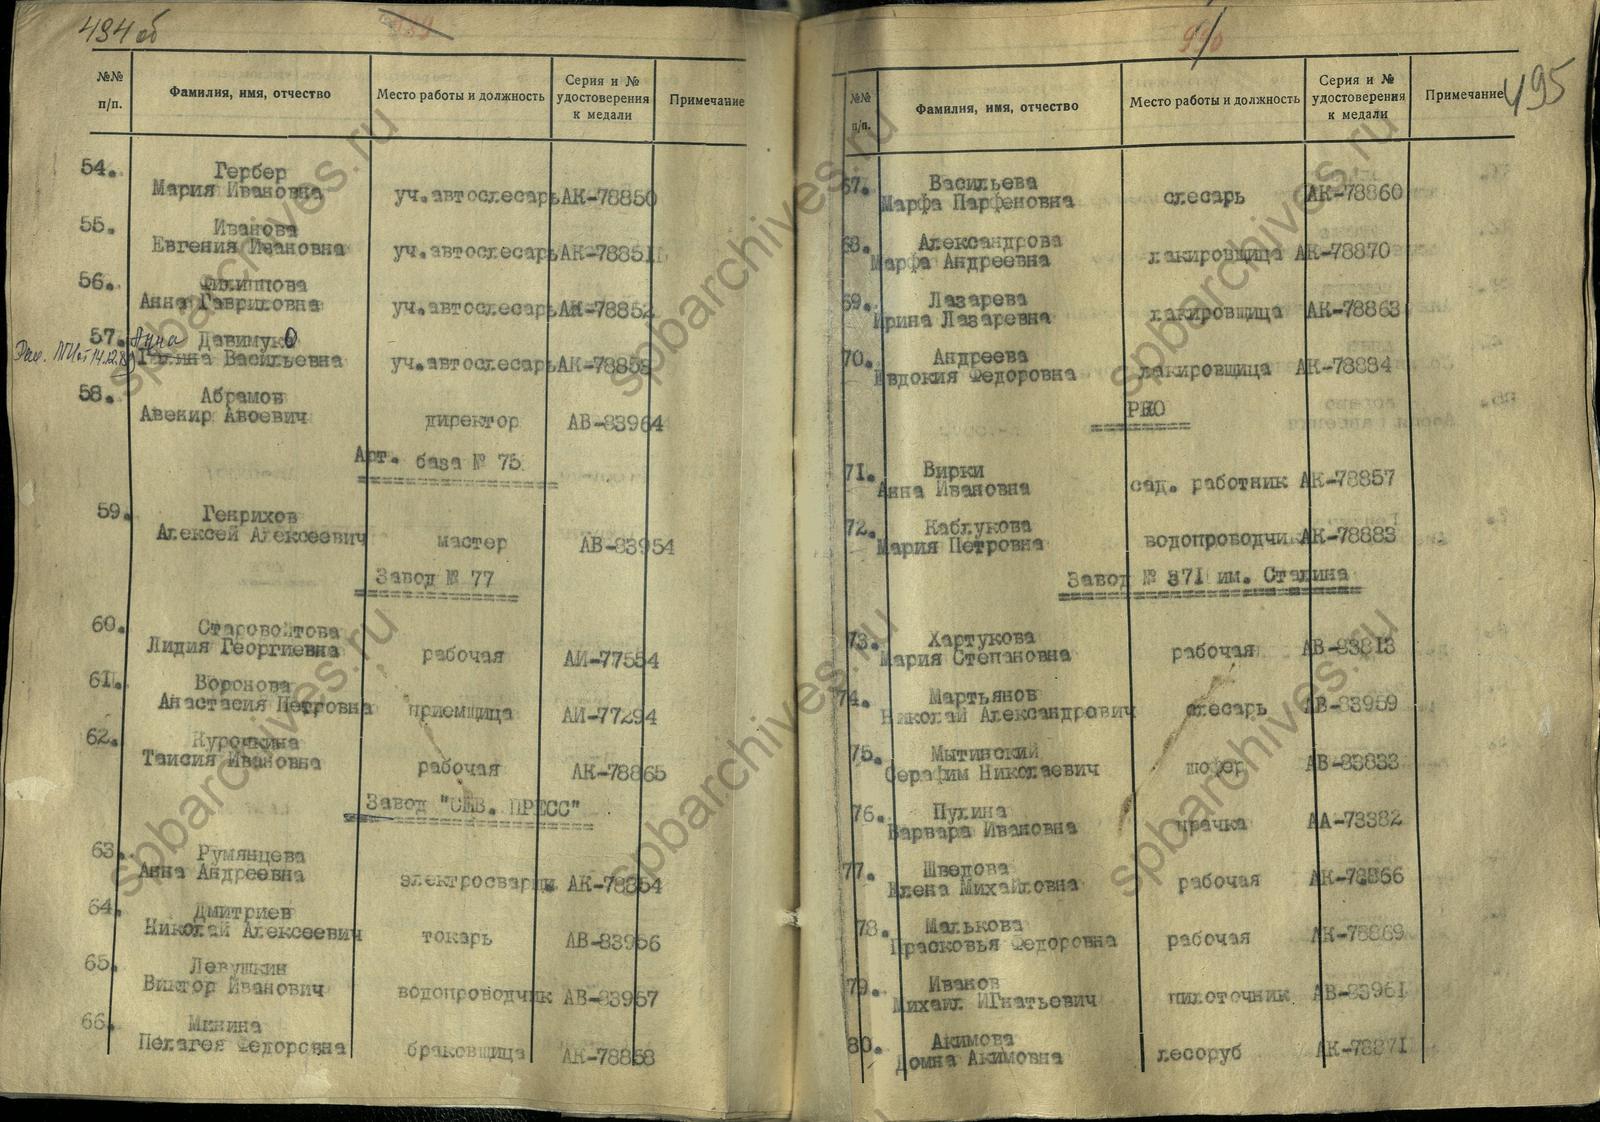 494 об
№№ п/п. Фамилия, имя, отчество Место работы и должность Серия и № удостоверения к медали Примечание
54. Гербер
Мария Ивановна уч.автослесарь АК-78850
55. Иванова
Евгения Ивановна уч.автослесарь АК-78851
56. Филиппова
Анна Гавриловна уч.автослесарь АК-78852
57. Анна Давимуко
Галина Васильевна уч.автослесарь
58. Абрамов
Авенир Авоевич директор АВ-83964
Арт. база № 75
59. Генрихов
Алексей Алексеевич мастер АВ-83954
Завод № 77
60. Старовойтова
Лидия Георгиевна рабочая АИ-77554
61. Воронова
Анастасия Петровна приемщица АИ-77294
62. Курочкина
Таисия Ивановна рабочая АК-78865
Завод "СЕВ. ПРЕСС"
63. Румянцева
Анна Андреевна электросварщи АК-78854
64. Дмитриев
Николай Алексеевич токарь АВ-83956
65. Левушкин
Виктор Иванович водопроводчик АВ-83957
66. Минина
Пелагея Федоровна браковщица АК-78858
990
495
№№ п/п. Фамилия, имя, отчество Место работы и должность Серия и № удостоверения к медали Примечание
67. Васильева
Марфа Парфеновна слесарь АК-78860
68. Александрова
Марфа Андреевна лакировщица АК-78870
69. Лазарева
Ирина Лазаревна лакировщица АК-78863
70. Андреева
Евдокия Федоровна лакировщица АК-78884
71. Вирки
Анна Ивановна сад. работник АК-78857
72. Каблукова
Мария Петровна водопроводчи АК-78883
Завод № 371 им. Сталина
73. Хартукова
Мария Степановна рабочая АВ-83813
74. Мартьянов
Николай Александрович слесарь АВ-83959
75. Мытинский
Серафим Николаевич шофер АВ-83833
76. Пулина
Варвара Ивановна прачка АА-73382
77. Шведова
Елена Михайловна рабочая АК-78866
78. Малькова
Прасковья Федоровна рабочая АК-78869
79. Иванов
Михаил ИГнатьевич пилоточник АВ-83961
80. Акимова
Домна Акимовна лесоруб АК-78871
spbarchives.ru
spbarchives.ru
spbarchives.ru
spbarchives.ru
spbarchives.ru
spbarchives.ru